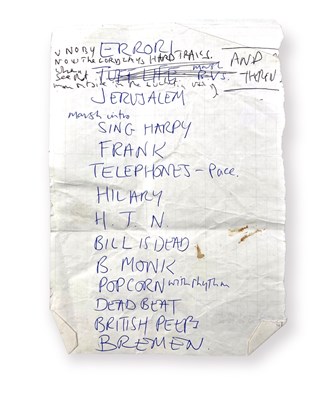 ERROR!
NOW THE LORD LAYS HARD TRAILS.
AND
THEN
JERUSALEM
marsh intro
SING HARPY
FRANK
TELEPHONES - Pace.
HILARY
H.T.N.
BILL IS DEAD
B. MONK
POPCORN with rhythm
DEADBEAT
BRITISH PEEPS
BREMEN